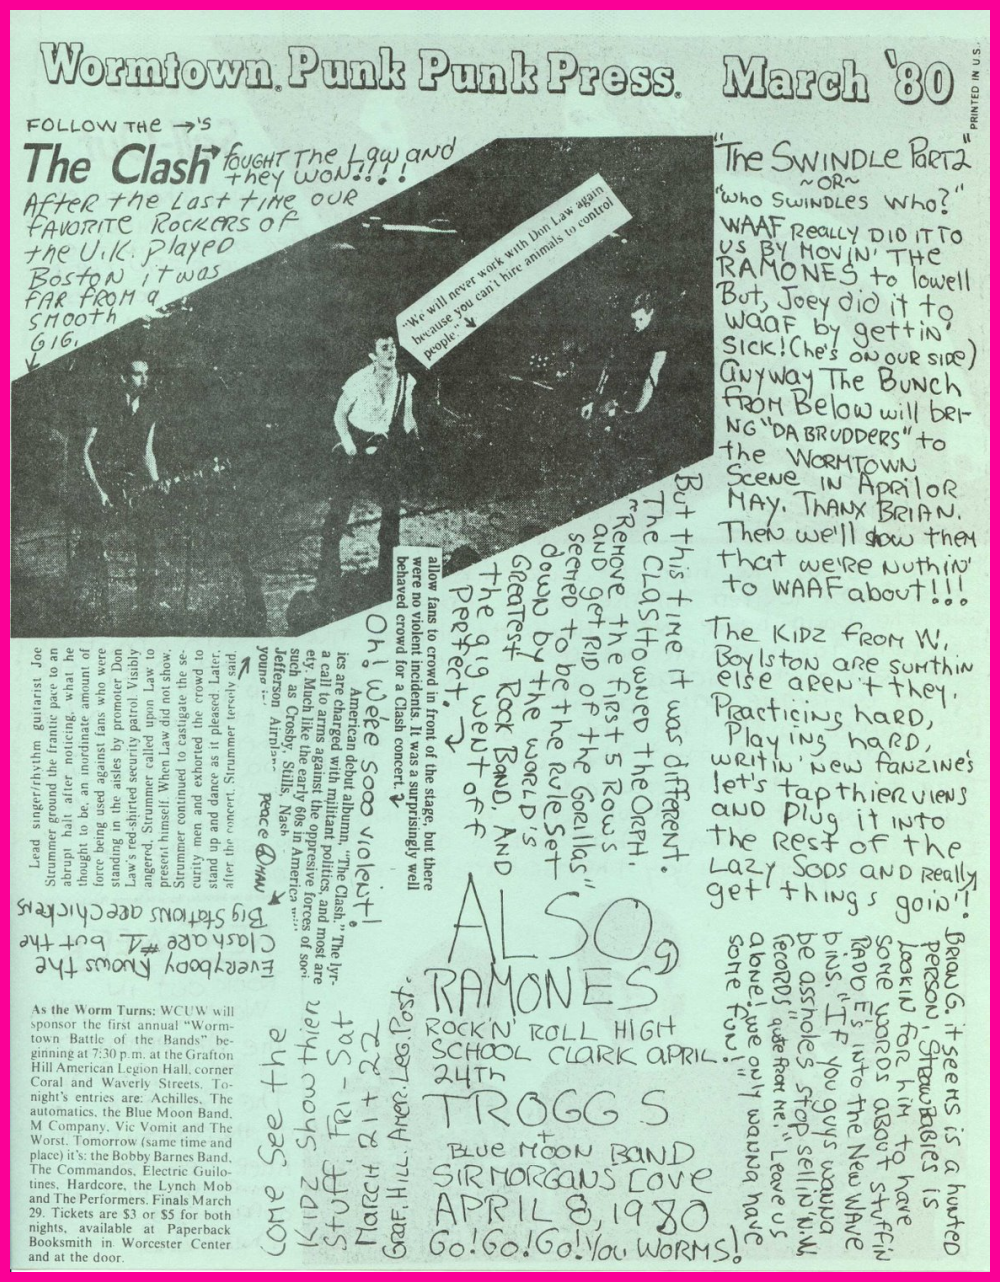 Wormtown Punk Punk Press. March '80
PRINTED IN U.S.
FOLLOW THE →'S
The Clash → fOUGHT The Law and
they WON!!!!
AfteR the Last tiMe OUR
fAVORITE ROCKERS OF
the U.K. played
BOSTON it was
fAR fROM a
SMOOth
GIG.
"We will never work with Don Law again
because you can't hire animals to control
people."
Lead singer/rhythm guitarist Joe
Strummer ground the frantic pace to an
abrupt halt after noticing, what he
thought to be, an inordinate amount of
force being used against fans who were
standing in the aisles by promoter Don
Law's red-shirted security patrol. Visibly
angered, Strummer called upon Law to
present himself. When Law did not show,
Strummer continued to castigate the se-
curity men and exhorted the crowd to
stand up and dance as it pleased. Later,
after the concert, Strummer tersely said,
But this time it was different.
The CLASH OWNED the ORPH.
"Remove the first 5 Rows
AND get RID of the Gorillas"
seemed to be the rule set
down by the WORLD'S
GReatest Rock BAND, AND
the gig went off
perfect.
allow fans to crowd in front of the stage, but there
were no violent incidents. It was a surprisingly well
behaved crowd for a Clash concert.
Oh! We're sooo violent!
American debut albumn, "The Clash." The lyr-
ics are charged with militant politics, and most are
a call to arms against the oppresive forces of soci-
ety. Much like the early 60s in America
such as Crosby, Stills, Nash
Jefferson Airplane
young
peace MAN
Everybody knows the
Clash are #1 but the
Big Stations are Chickens
As the Worm Turns: WCUW will
sponsor the first annual "Worm-
town Battle of the Bands" be-
ginning at 7:30 p.m. at the Grafton
Hill American Legion Hall, corner
Coral and Waverly Streets. To-
night's entries are: Achilles, The
automatics, the Blue Moon Band,
M Company, Vic Vomit and The
Worst. Tomorrow (same time and
place) it's: the Bobby Barnes Band,
The Commandos, Electric Guilo-
tines, Hardcore, the Lynch Mob
and The Performers. Finals March
29. Tickets are $3 or $5 for both
nights, available at Paperback
Booksmith in Worcester Center
and at the door.
come see the
Kidz show their
Stuff. Fri - Sat
MARCH 21 + 22
GRAF. HILL. AMER LEG. Post.
ALSO,
RAMONES
ROCK'N' ROLL HIGH
SCHOOL CLARK APRIL
24TH
TROGGS
+
BLUE MOON BAND
SIR MORGANS COVE
APRIL 8, 1980
Go! Go! Go! You WORMS!
"The SWINDLE PaRt 2"
~OR~
"who SWINDLES Who?"
WAAF Really DID it TO
US BY MOVIN' THE
RAMONES to lowell
But, Joey did it to
waaf by gettin'
SICK! (he's ON OUR side)
Anyway The BUNCH
fROM Below will bri-
NG "DA BRUDDERS" to
the WORMTOWN
Scene IN April OR
MAY. THANX BRIAN.
Then we'll show them
that we're Nuthin'
to WAAF about!!!
The KIDZ fROM W.
Boylston aRe sumthin
else aren't they.
Practicing haRD,
Playing haRD,
writin' new fanzine's
let's tap thier viens
AND Plug it INTO
the Rest of the
Lazy Sods AND Really
get things goin'!
BRIAN G. it seems is a hunted
person. Straw Babies is
Lookin for him to have
some words about stuffin
RADIO E's into the New WAVE
bins. "If you guys wanna
be assholes stop sellin' N.W.
records" quote from me. "Leave us
alone! we only wanna have
some fun!"